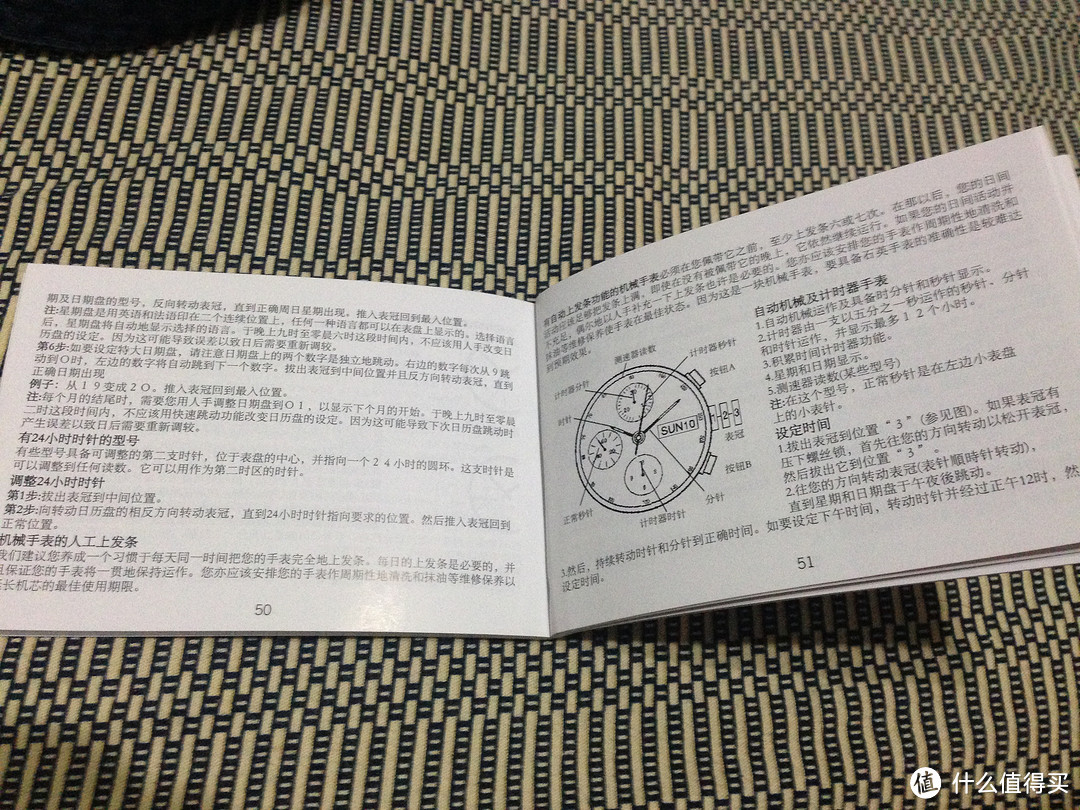 期及日期盘的型号，反向转动表冠，直到正确周日星期出现。推入表冠回到最入位置。
注:星期盘是用英语和法语印在二个连续位置上，任何一种语言都可以在表盘上显示的。选择语言
后，星期盘将自动地显示选择的语言。于晚上九时至零晨六时这段时间内，不应该用人手改变日
历盘的设定。因为这可能导致误差以致日后需要重新调较。
第6步:如要设定特大日期盘，请注意日期盘上的两个数字是独立地跳动。右边的数字每次从９跳
动到Ｏ时，左边的数字将自动跳到下一个数字。拔出表冠到中间位置并且反方向转动表冠，直到
正确日期出现
例子：从１９变成２Ｏ。推入表冠回到最入位置。
注:每个月的结尾时，需要您用人手调整日期盘到Ｏ１，以显示下个月的开始。于晚上九时至零晨
二时这段时间内，不应该用快速跳动功能改变日历盘的设定。因为这可能导致下次日历盘跳动时
产生误差以致日后需要重新调较。
有24小时时针的型号
有些型号具备可调整的第二支时针，位于表盘的中心，并指向一个２４小时的圆环。这支时针是
可以调整到任何读数。它可以用作为第二时区的时针。
调整24小时时针
第1步:拔出表冠到中间位置。
第2步:向转动日历盘的相反方向转动表冠，直到24小时时针指向要求的位置。然后推入表冠回到
正常位置。
机械手表的人工上发条
我们建议您养成一个习惯于每天同一时间把您的手表完全地上发条。每日的上发条是必要的，并
且保证您的手表将一贯地保持运作。您亦应该安排您的手表作周期性地清洗和抹油等维修保养以
延长机芯的最佳使用期限。
50
有自动上发条功能的机械手表必须在您佩带它之前，至少上发条六或七次。在那以后，您的日间
活动应该足够把发条上满，即使在没有被佩带它的晚上，它依然继续运行。如果您的日间活动并
不充足，偶尔地以人手补充一下上发条也许是必要的。您亦应该安排您的手表作周期性地清洗和
抹油等维修保养使手表在最佳状态。因为这是一块机械手表，要具备石英手表的准确性是较难达
到预期效果。
测速器读数
计时器秒针
计时器分针
按钮A
时针
SUN10
1 2 3
表冠
按钮B
分针
正常秒针
计时器时针
自动机械及计时器手表
1.自动机械运作及具备时分针和秒针显示。
2.计时器由一支以五分之一秒运作的秒针、分针
和时针运作，并显示最多１２个小时。
3.积累时间计时器功能。
4.星期和日期显示。
5.测速器读数(某些型号)
注:在这个型号，正常秒针是在左边小表盘
上的小表针。
设定时间
1.拔出表冠到位置“３”(参见图)。如果表冠有
压下螺丝锁，首先往您的方向转动以松开表冠，
然后拔出它到位置“３”。
2.往您的方向转动表冠(表针顺時针转动)，
直到星期和日期盘于午夜後跳动。
3.然后，持续转动时针和分针到正确时间。如要设定下午时间，转动时针并经过正午12时，然
设定时间。
51
值 什么值得买